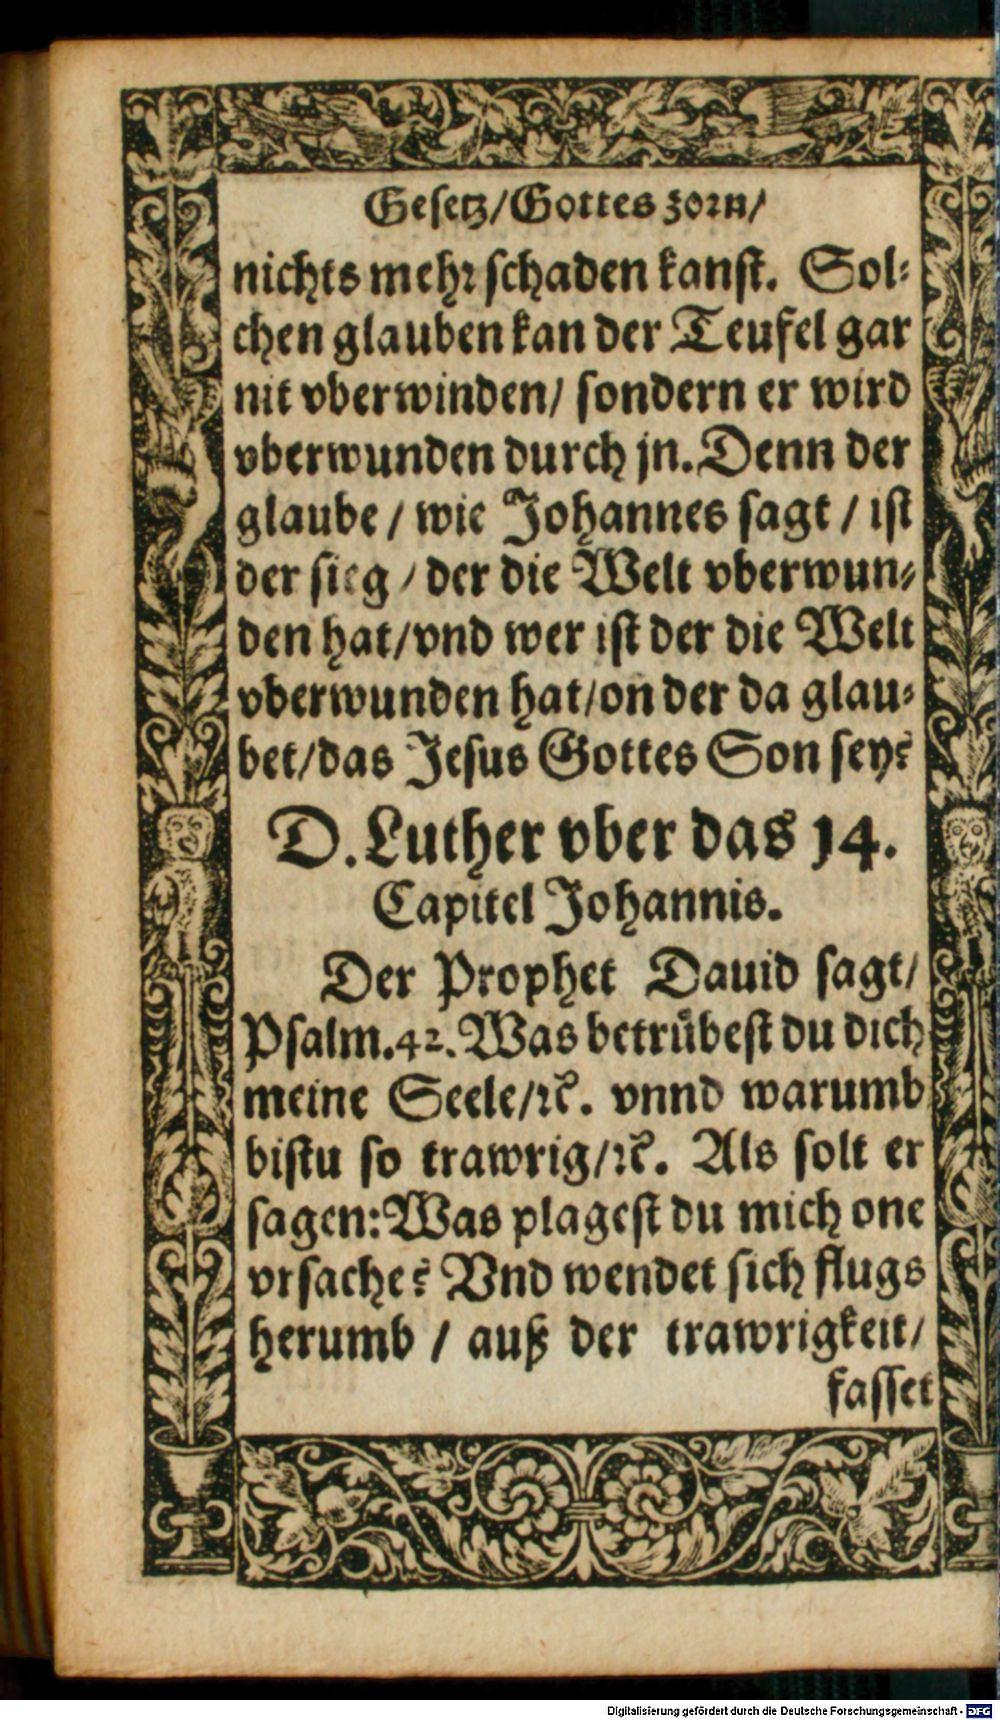 Gesetz/Gottes zorn/
nichts mehr schaden kanst. Sol⸗
chen glauben kan der Teufel gar
nit vberwinden/ sondern er wird
vberwunden durch jn. Denn der
glaube / wie Johannes sagt / ist
der sieg / der die Welt vberwun⸗
den hat/vnd wer ist der die Welt
vberwunden hat/on der da glau⸗
bet/das Jesus Gottes Son sey?
D. Luther vber das 14.
Capitel Johannis.
Der Prophet Dauid sagt/
Psalm.42. Was betrübest du dich
meine Seele/ꝛc. vnnd warumb
bistu so trawrig/ꝛc. Als solt er
sagen: Was plagest du mich one
vrsache? Vnd wendet sich flugs
herumb / auß der trawrigkeit/
fasset
Digitalisierung gefördert durch die Deutsche Forschungsgemeinschaft - DFG